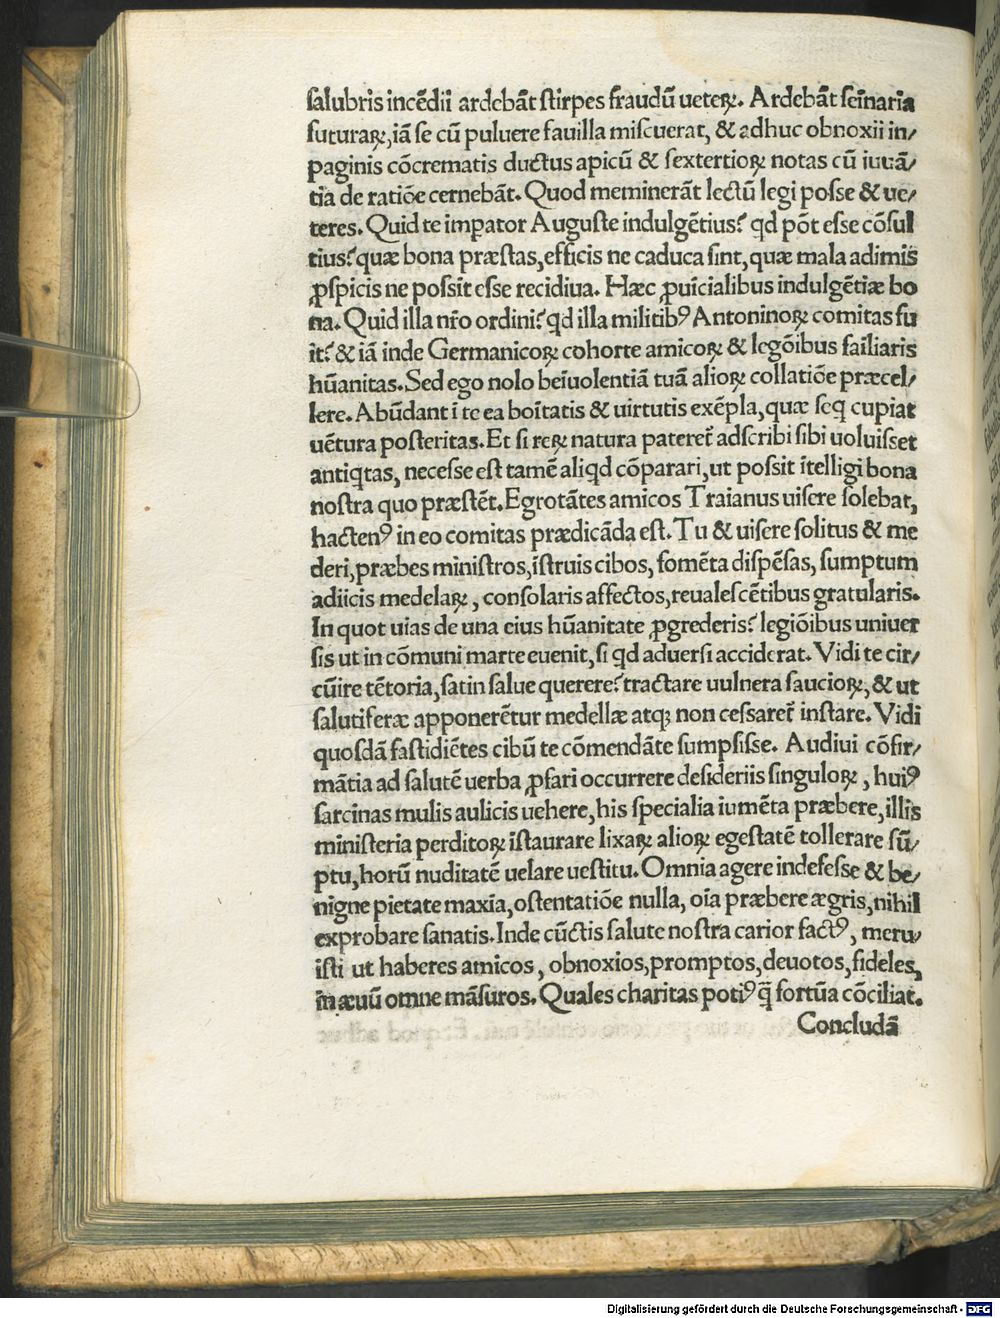 ſalubris incẽdii ardebãt ſtirpes fraudũ ueteꝝ. Ardebãt ſeĩnaria
futuraꝝ, iã ſe cũ puluere fauilla miſcuerat, & adhuc obnoxii in/
paginis cõcrematis ductus apicũ & ſextertioꝝ notas cũ iuuã/
tia de ratiõe cernebãt. Quod meminerãt lectũ legi poſſe & ue/
teres. Quid te imꝑator Auguſte indulgẽtius? qd põt eſſe cõſul
tius? quæ bona præſtas, efficis ne caduca ſint, quæ mala adimis
ꝓſpicis ne poſſit eſſe recidiua. Hæc ꝓuĩcialibus indulgẽtiæ bo
na. Quid illa nr̃o ordini? qd illa militibꝰ Antoninoꝝ comitas fu
it? & iã inde Germanicoꝝ cohorte amicoꝝ & legõibus faĩliaris
hũanitas. Sed ego nolo beĩuolentiã tuã alioꝝ collatiõe præcel/
lere. Abũdant ĩ te ea boĩtatis & uirtutis exẽpla, quæ ſeq̃ cupiat
uẽtura poſteritas. Et ſi reꝝ natura pateret̃ adſcribi ſibi uoluiſſet
antiq̃tas, neceſſe eſt tamẽ aliqd cõparari, ut poſſit ĩtelligi bona
noſtra quo præſtẽt. Egrotãtes amicos Traianus uiſere ſolebat,
hactenꝰ in eo comitas prædicãda eſt. Tu & uiſere ſolitus & me
deri, præbes miniſtros, ĩſtruis cibos, fomẽta diſpẽſas, ſumptum
adiicis medelaꝝ, conſolaris affectos, reualeſcẽtibus gratularis.
In quot uias de una eius hũanitate ꝓgrederis? legiõibus uniuer
ſis ut in cõmuni marte euenit, ſi qd aduerſi acciderat. Vidi te cir/
cũire tẽtoria, ſatin ſalue querere? tractare uulnera ſaucioꝝ, & ut
ſalutiferæ apponerẽtur medellæ atqꝫ non ceſſaret̃ inſtare. Vidi
quoſdã faſtidiẽtes cibũ te cõmendãte ſumpſiſſe. Audiui cõfir/
mãtia ad ſalutẽ uerba ꝓfari occurrere deſideriis ſinguloꝝ, huiꝰ
ſarcinas mulis aulicis uehere, his ſpecialia iumẽta præbere, illis
miniſteria perditoꝝ ĩſtaurare lixaꝝ alioꝝ egeſtatẽ tollerare ſũ/
ptu, horũ nuditatẽ uelare ueſtitu. Omnia agere indefeſſe & be/
nigne pietate maxĩa, oſtentatiõe nulla, oĩa præbere ægris, nihil
exprobare ſanatis. Inde cũctis ſalute noſtra carior factꝰ, meru/
iſti ut haberes amicos, obnoxios, promptos, deuotos, fideles,
in æuũ omne mãſuros. Quales charitas potiꝰ q̃ fortũa cõciliat.
Concludã
Digitalisierung gefördert durch die Deutsche Forschungsgemeinschaft - DFG